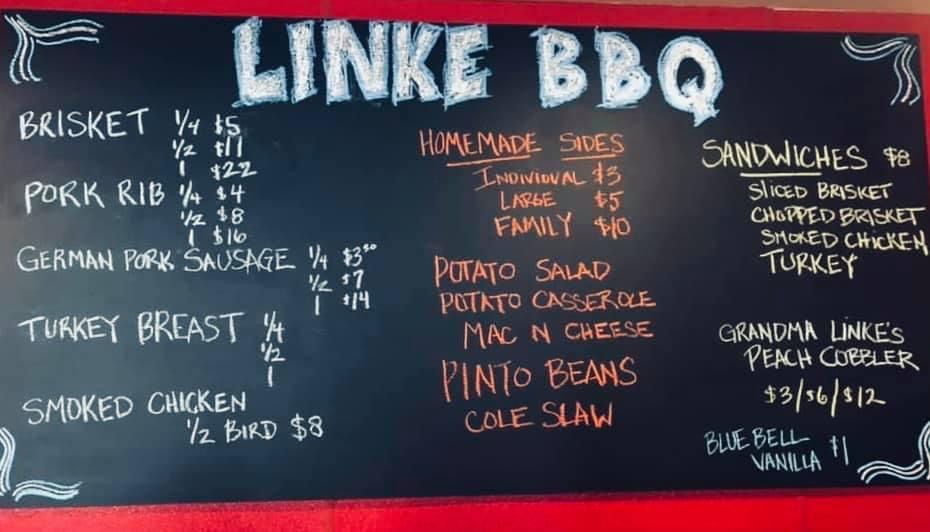 LINKE BBQ
BRISKET 1/4 $5
1/2 $11
1 $22
PORK RIB 1/4 $4
1/2 $8
1 $16
GERMAN PORK SAUSAGE 1/4 $3.50
1/2 $7
1 $14
TURKEY BREAST 1/4
1/2
1
SMOKED CHICKEN
1/2 BIRD $8
HOMEMADE SIDES
INDIVIDUAL $3
LARGE $5
FAMILY $10
POTATO SALAD
POTATO CASSEROLE
MAC N CHEESE
PINTO BEANS
COLE SLAW
SANDWICHES $8
SLICED BRISKET
CHOPPED BRISKET
SMOKED CHICKEN
TURKEY
GRANDMA LINKE'S
PEACH COBBLER
$3/$6/$12
BLUE BELL
VANILLA $1